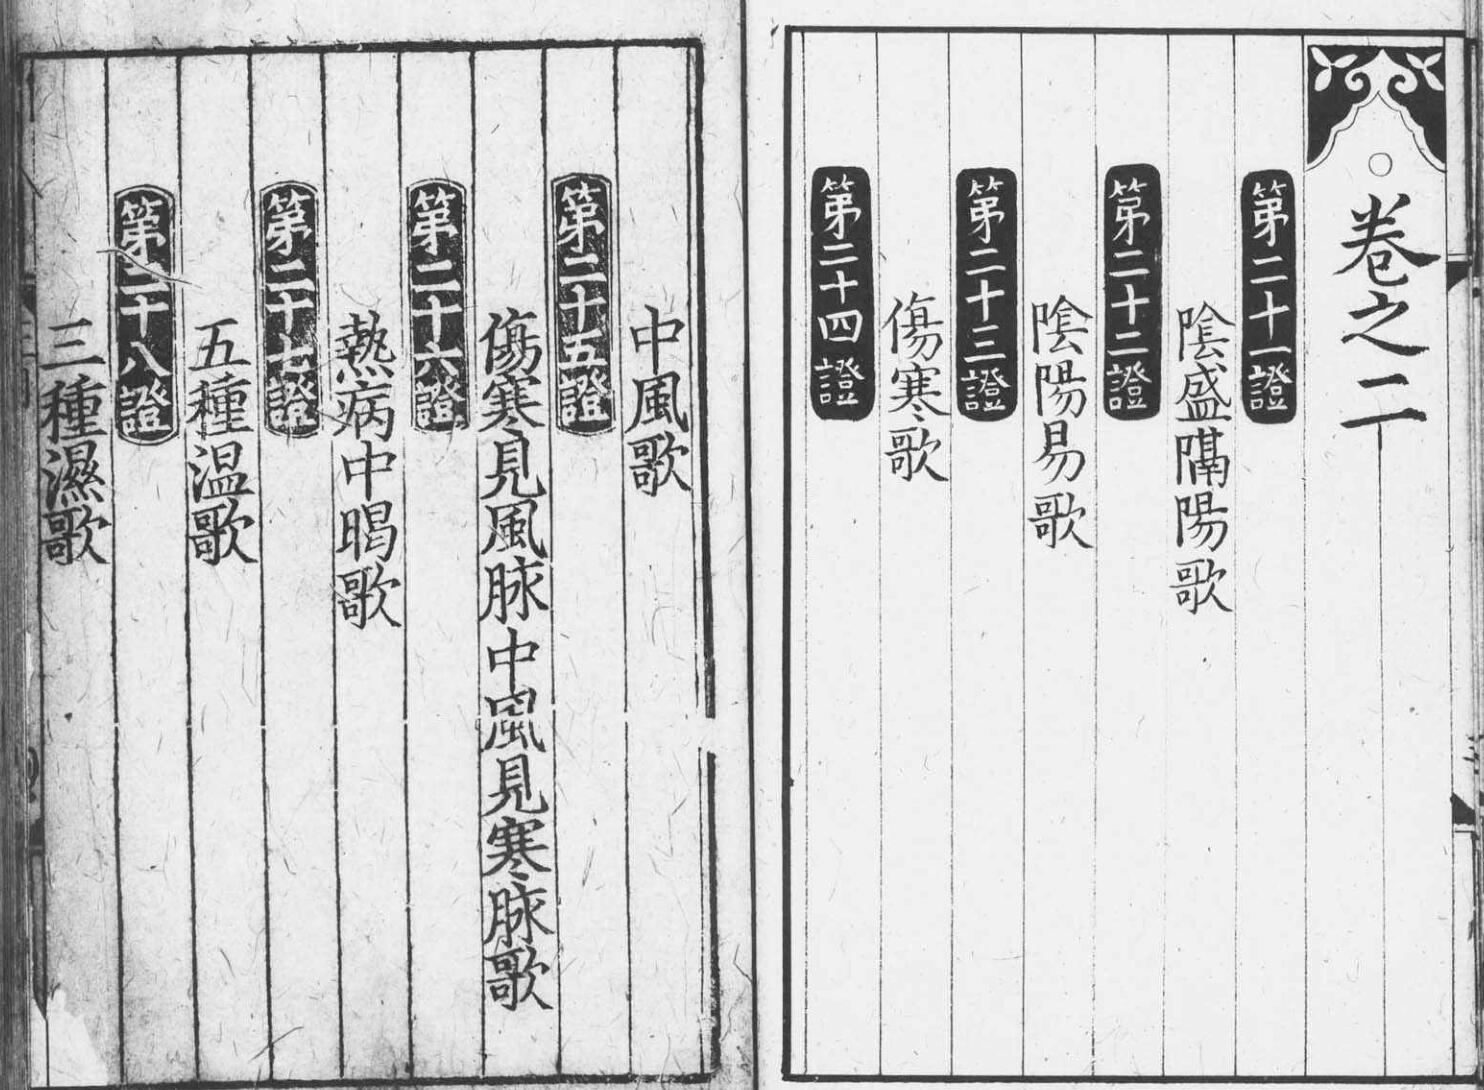 卷之二
第二十一證
陰盛隔陽歌
第二十二證
陰陽易歌
第二十三證
傷寒歌
第二十四證
中風歌
第二十五證
傷寒見風脉中風見寒脉歌
第二十六證
熱病中暍歌
第二十七證
五種溫歌
第二十八證
三種濕歌